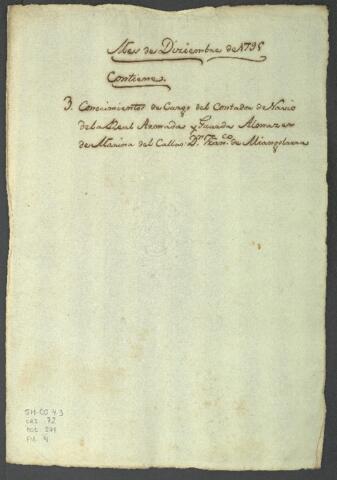 Mes de Diziembre de 1795
Contiene.
3. Conocimientos de Cargo del Contador de Navio
de la Real Armada y Guarda Almazen
de Marina del Callao Dn. Franco. de Miangolarra
SM-CO 4.3
CAJ. 72
DOC. 271
Fol. 4